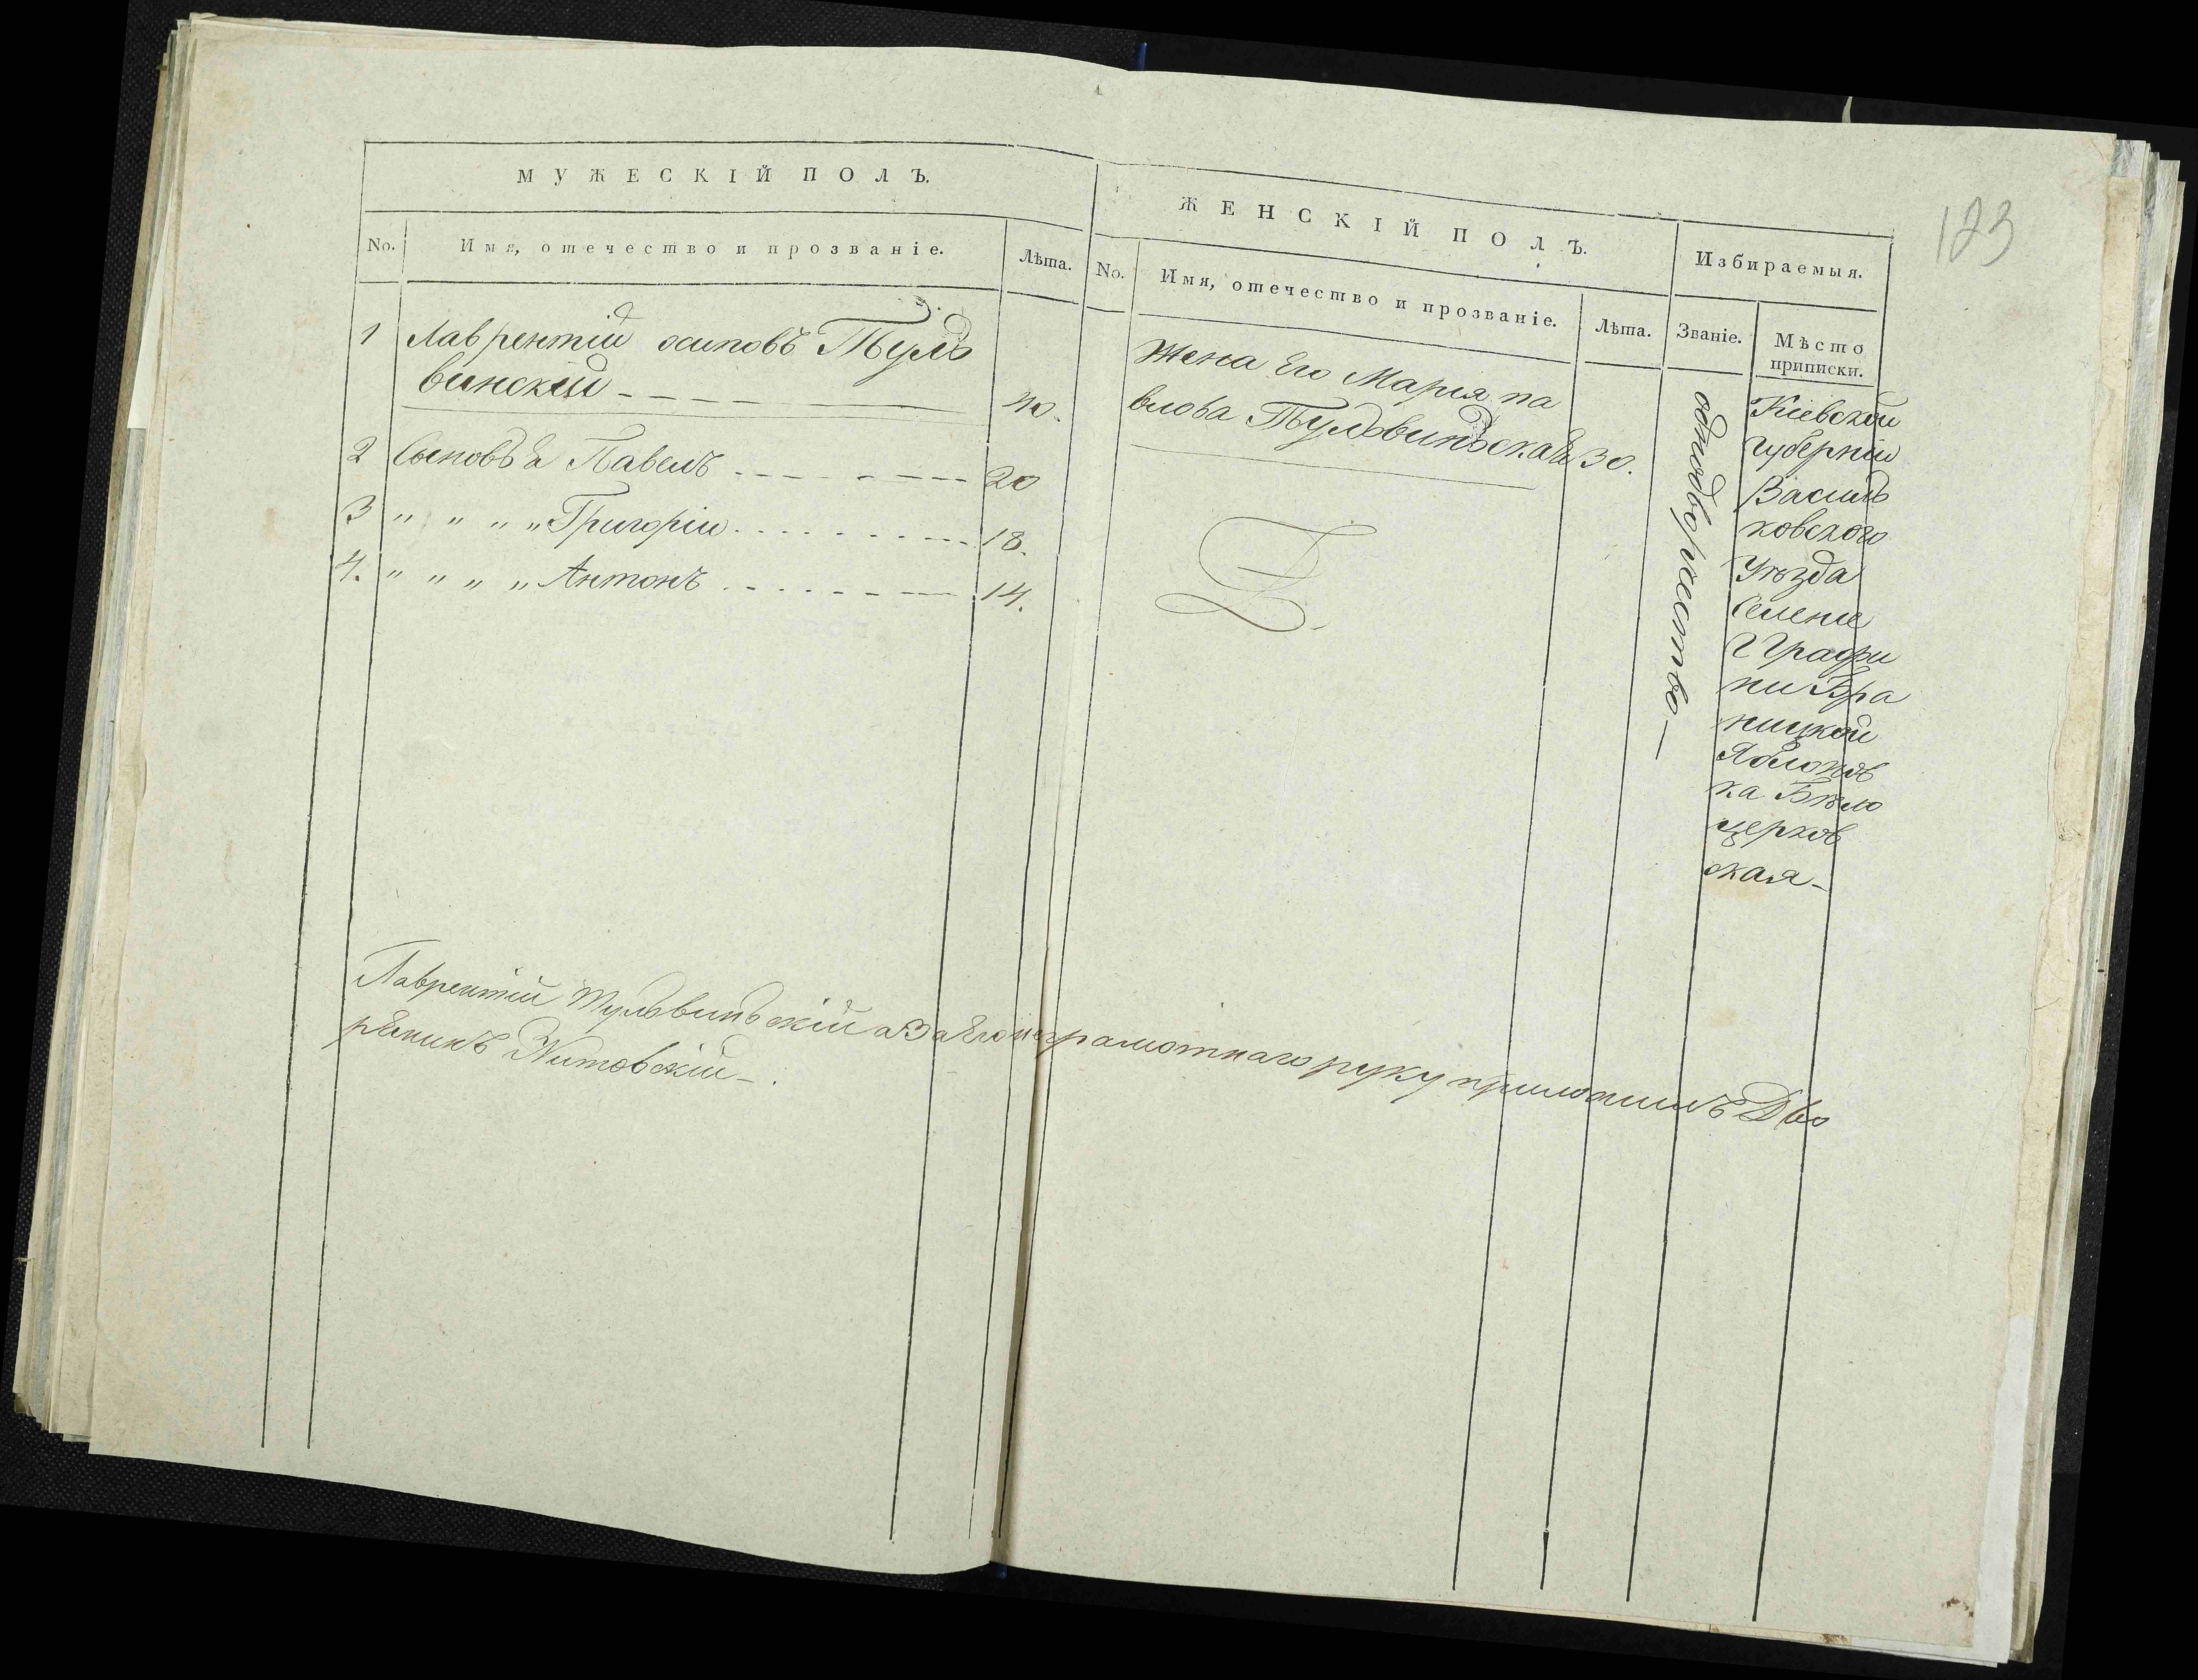 123
МУЖЕСКІЙ ПОЛЪ.
No. Имя, отечество и прозваніе. Лѣта.
1 Лаврентій осиповъ Тулъ
винскій 40.
2 Сыновья Павелъ 20
3 " " " " Григорій 18.
4. " " " " Антонъ 14.
ЖЕНСКІЙ ПОЛЪ.
No. Имя, отечество и прозваніе. Лѣта.
Жена Его Марія па
влова Тулвинъская 30.
Избираемыя.
Званіе.
однодворчество
Мѣсто
приписки.
Кіевской
губерніи
Василь
ковского
Уѣзда
Селеніе
Г Графи
ни Бра
ницкой
Яблонов
ка Бѣло
церков
ская
Лаврентій Тулъвинъскій а За Его неграмотнаго руку приложилъ Дво
рянинъ Житовскій